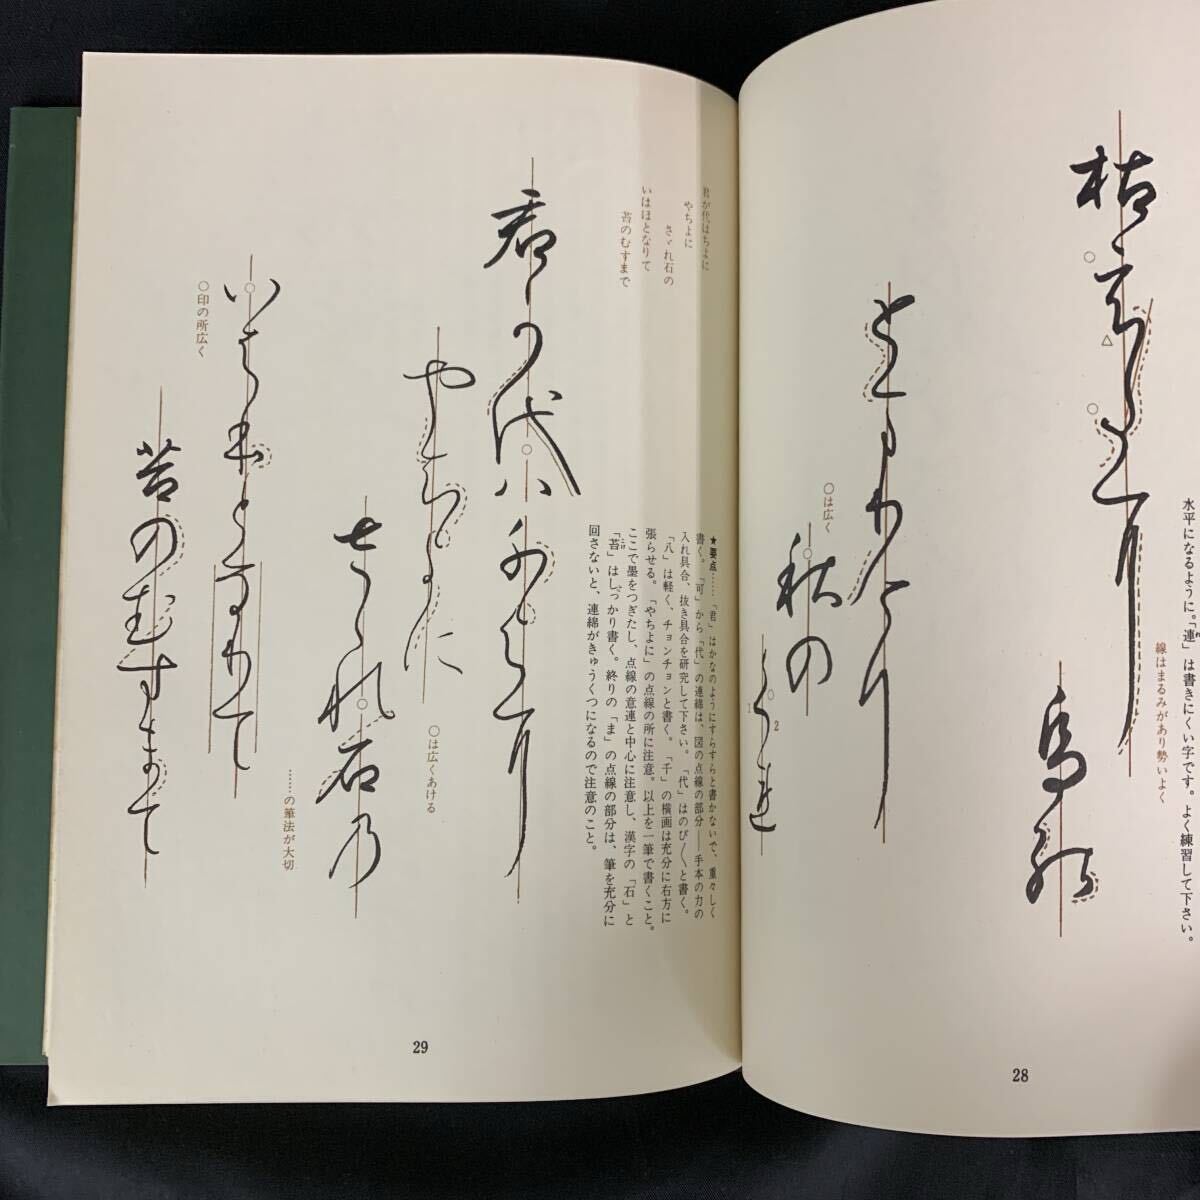 水平になるように。「連」は書きにくい字です。よく練習して下さい。
線はまるみがあり勢いよく
○
△
○
○は広く
秋の
くれ
1
2
28
君が代はちよに
やちよに
さゞれ石の
いはほとなりて
苔のむすまで
★要点……「君」はかなのようにすらすらと書かないで、重々しく
書く。「可」から「代」の連綿は、図の点線の部分──手本の力の
入れ具合、抜き具合を研究して下さい。「代」はのび〳〵と書く。
「八」は軽く、チョンチョンと書く。「千」の横画は充分に右方に
張らせる。「やちよに」の点線の所に注意。以上を一筆で書くこと。
ここで墨をつぎたし、点線の意連と中心に注意し、漢字の「石」と
「苔」はしっかり書く。終りの「ま」の点線の部分は、筆を充分に
回さないと、連綿がきゅうくつになるので注意のこと。
君可代八千よに
やちよに
○は広くあける
さゝれ石乃
……の筆法が大切
いはほとなりて
○印の所広く
苔のむすまて
29